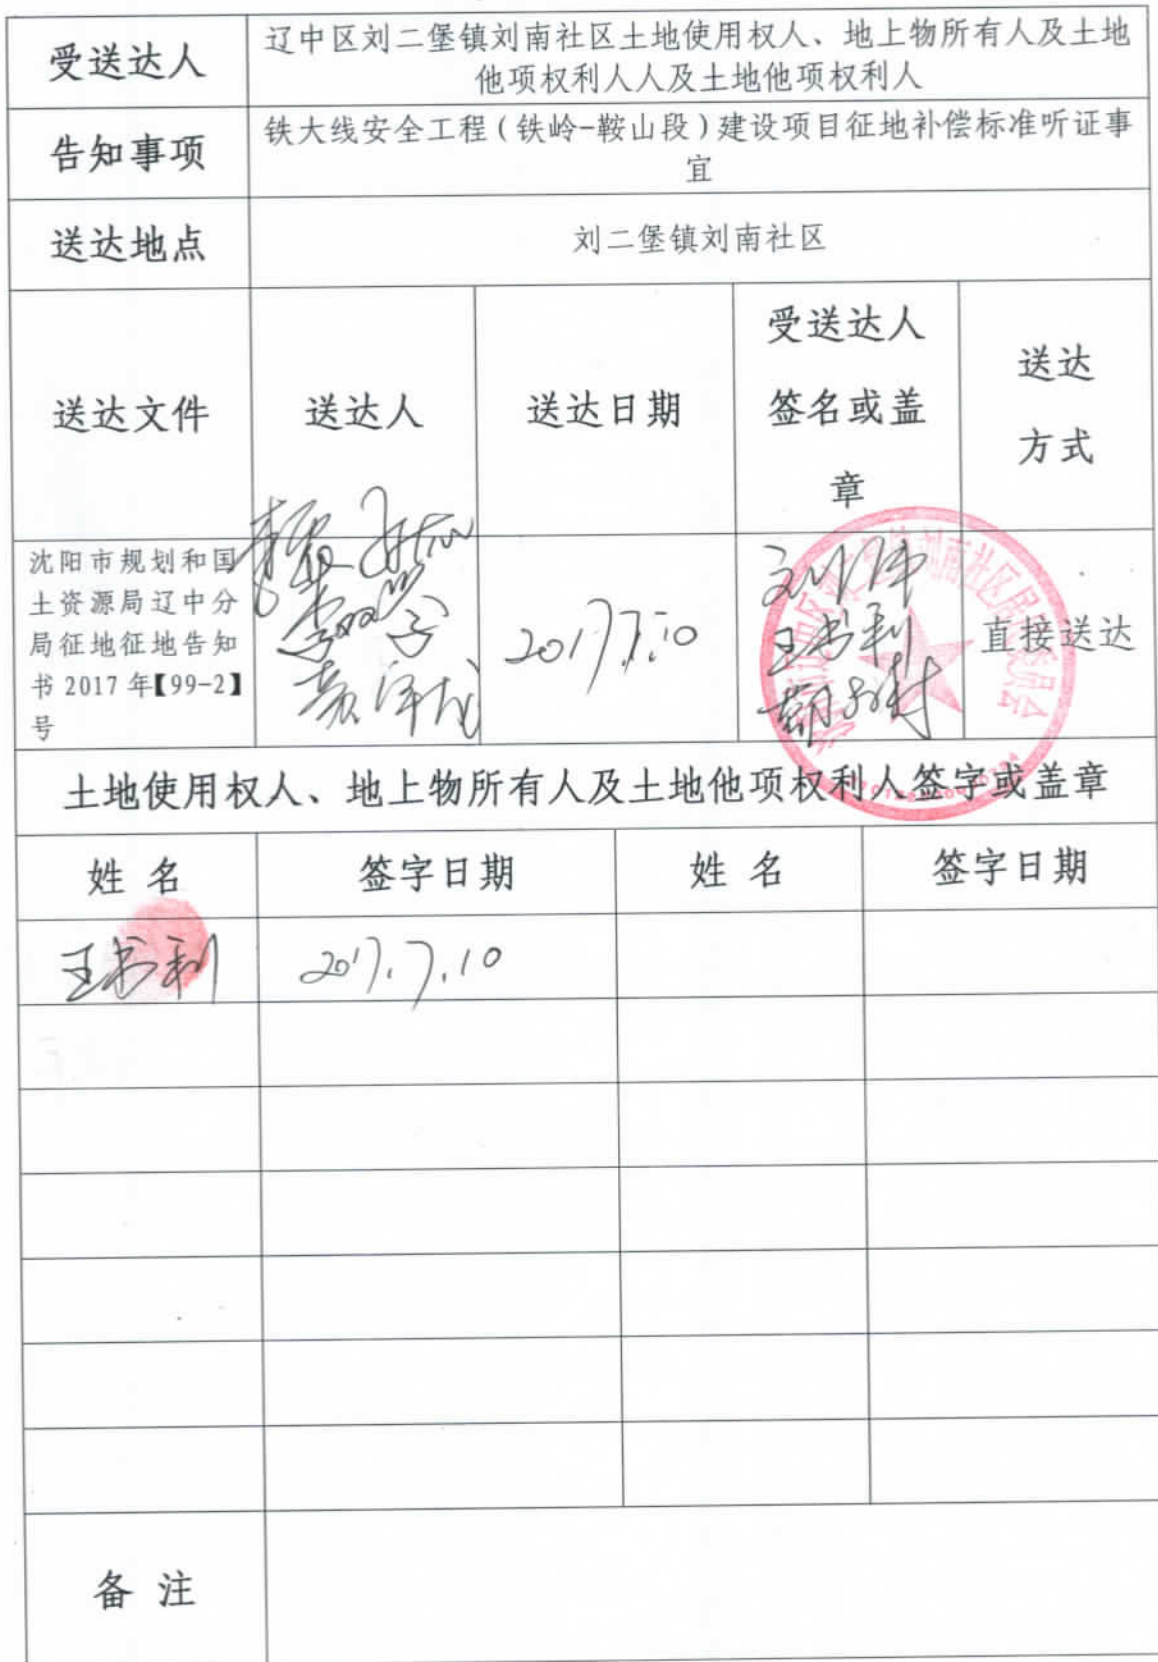 受送达人
辽中区刘二堡镇刘南社区土地使用权人、地上物所有人及土地
他项权利人人及土地他项权利人
告知事项
铁大线安全工程(铁岭-鞍山段)建设项目征地补偿标准听证事
宜
送达地点
刘二堡镇刘南社区
送达文件
送达人
送达日期
受送达人
签名或盖
章
送达
方式
沈阳市规划和国
土资源局辽中分
局征地征地告知
书 2017 年【99-2】
号
2017.7.10
王书利
直接送达
土地使用权人、地上物所有人及土地他项权利人签字或盖章
姓 名
签字日期
姓 名
签字日期
王书利
2017.7.10
备 注